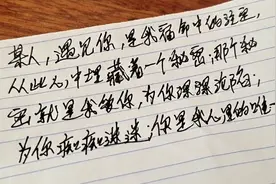 某人，遇见你，是我宿命中的注定，
从此心中埋藏着一个秘密，那个秘
密就是我等你，为你深深沉陷，
为你痴痴迷迷，你是我心里的唯一